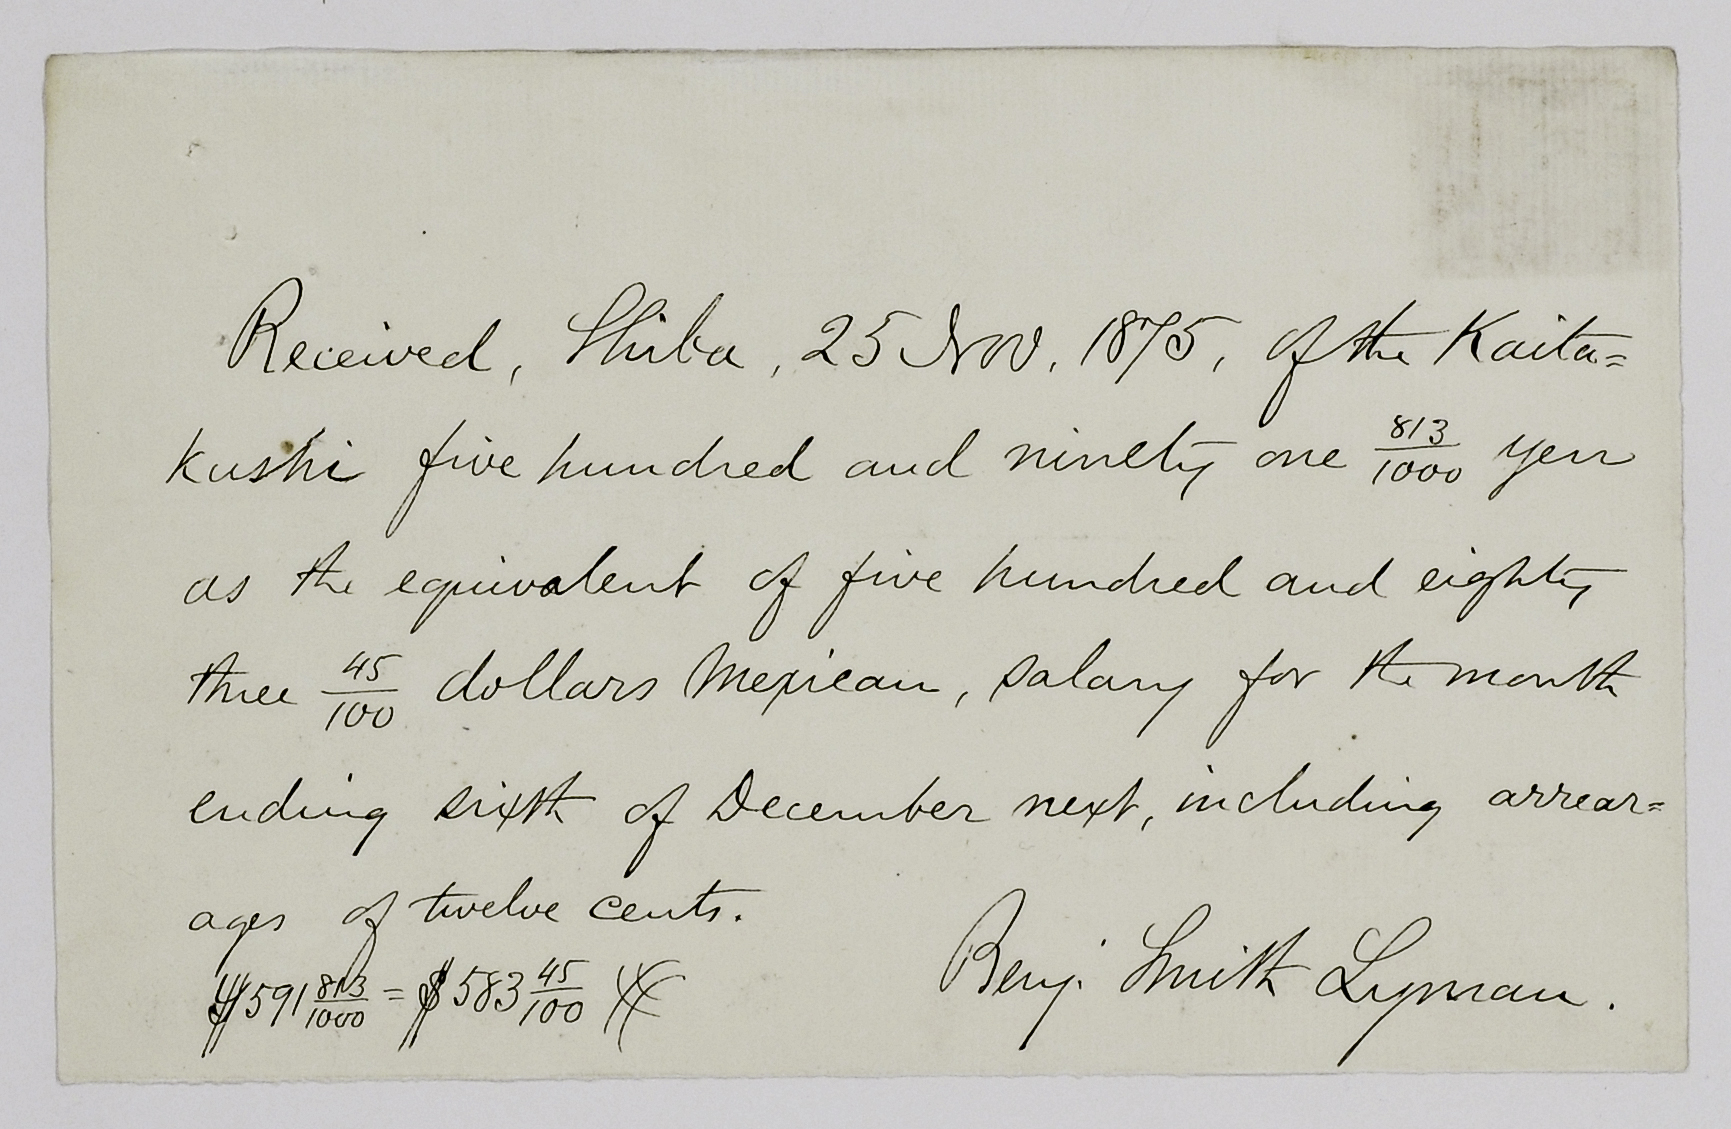 Received, Shiba, 25 Nov. 1875, of the Kaita=
kushi five hundred and ninety one 813/1000 yen
as the equivalent of five hundred and eighty
three 45/100 dollars Mexican, salary for the month
ending sixth of December next, including arrear=
ages of twelve cents.
Benj. Smith Lyman.
¥591 813/1000 = $583 45/100